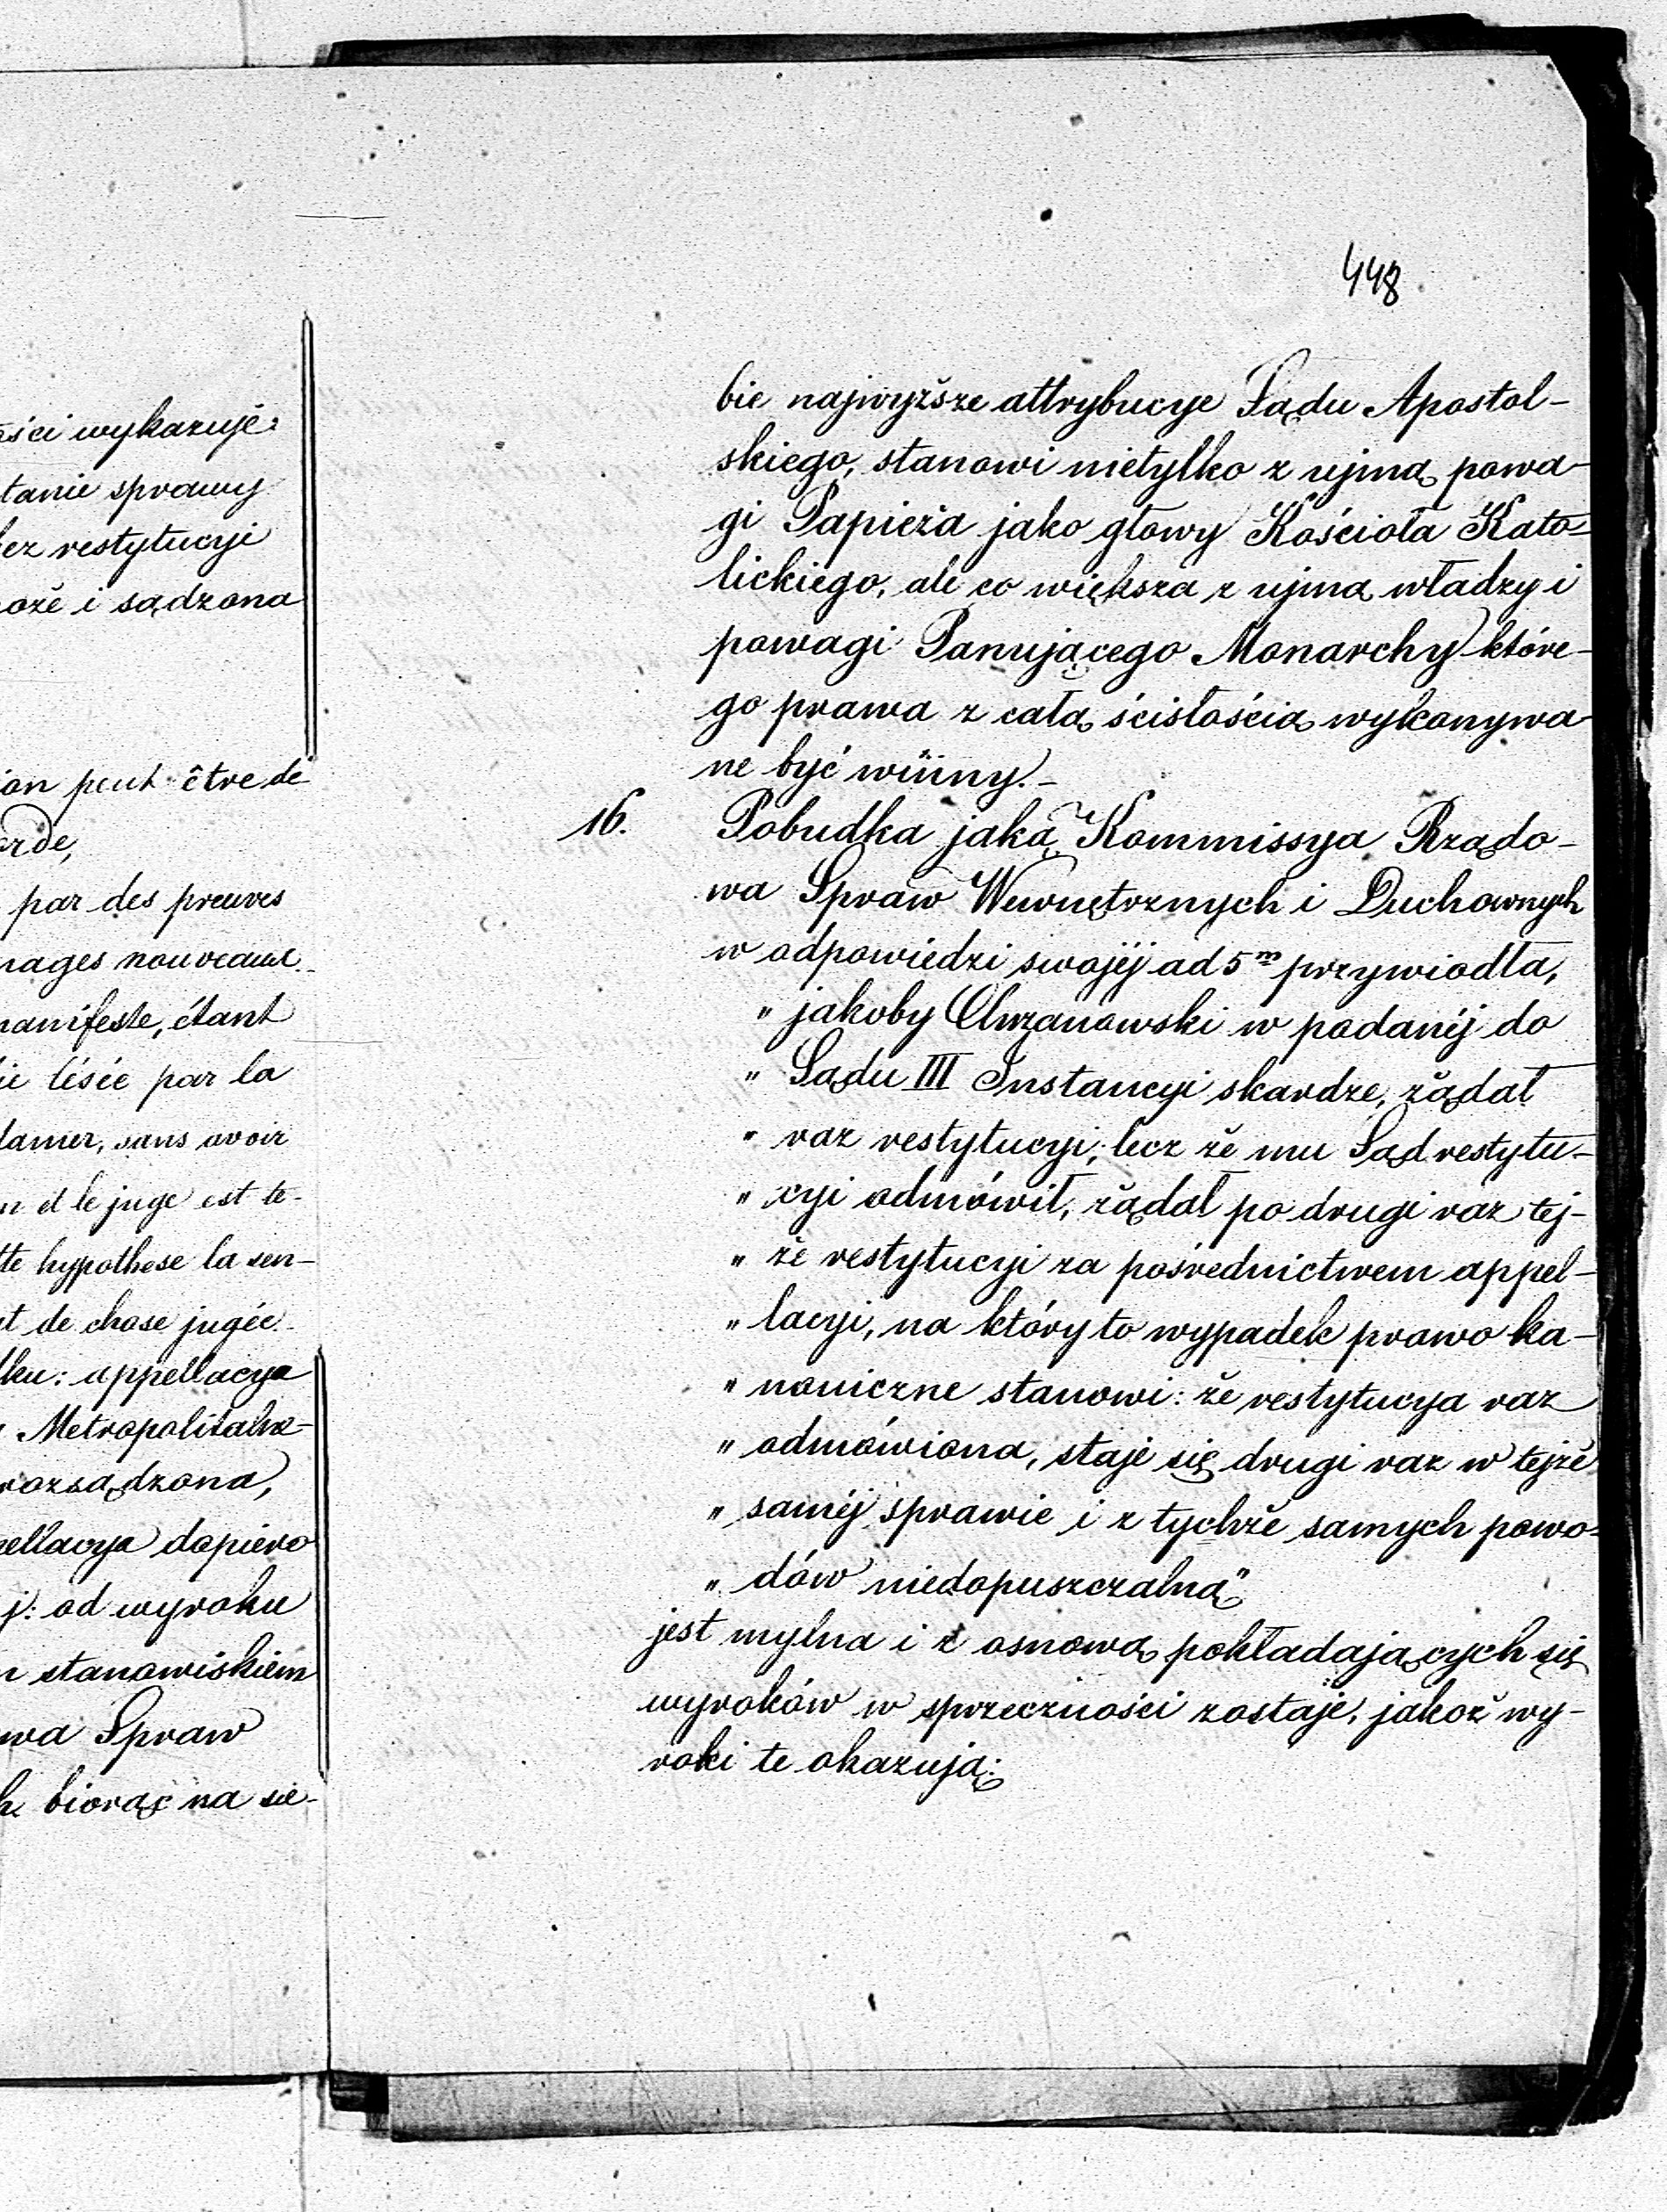 ści wykazuje:
tanie sprawy
bez restytucyi
może i sądzona
ion peut être de
arde,
par des preuves
nages nouveaux.
manifeste, étant
lésée par la
clamer, sans avoir
n et le juge est te-
tte hypothese la sen-
nt de chose jugée.
dku: appellacya
Metropolitalne-
rozsądzona,
pellacya dopiero
j: od wyroku
m stanowiskiem
wa Spraw
h biorąc na sie-
448
bie najwyższe attrybucye Sądu Apostol-
skiego, stanowi nietylko z ujmą powa-
gi Papieża jako głowy Kościoła Kato-
lickiego, ale co większa z ujmą władzy i
powagi Panującego Monarchy które-
go prawa z całą ścisłością wykonywa-
ne być winny.-
16. Pobudka jaką Kommissya Rządo-
wa Spraw Wewnętrznych i Duchownych
w odpowiedzi swojéj ad 5m przywiodła,
" jakoby Chrzanowski w podanéj do
" Sądu III Instancyi skardze, żądał
" raz restytucyi; lecz że mu Sąd restytu-
" cyi odmówił, żądał po drugi raz tej-
" że restytucyi za pośrednictwem appel-
" lacyi, na który to wypadek prawo ka-
" noniczne stanowi: że restytucya raz
" odmówiona, staje się drugi raz w tejże
" saméj sprawie i z tychże samych powo-
" dów niedopuszczalną"
jest mylna i z osnową pokładających się
wyroków w sprzeczności zostaje, jakoż wy-
roki te okazują: